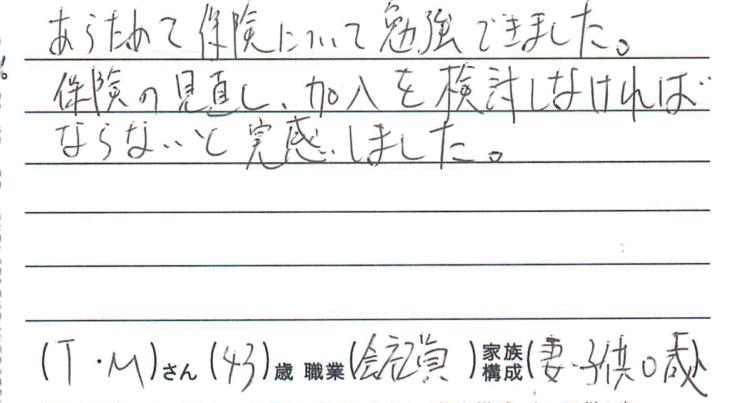 あらためて保険について勉強できました。
保険の見直し、加入を検討しなければ
ならないと実感しました。
(T・M)さん (43)歳 職業(会社員)家族構成(妻・子供0歳)